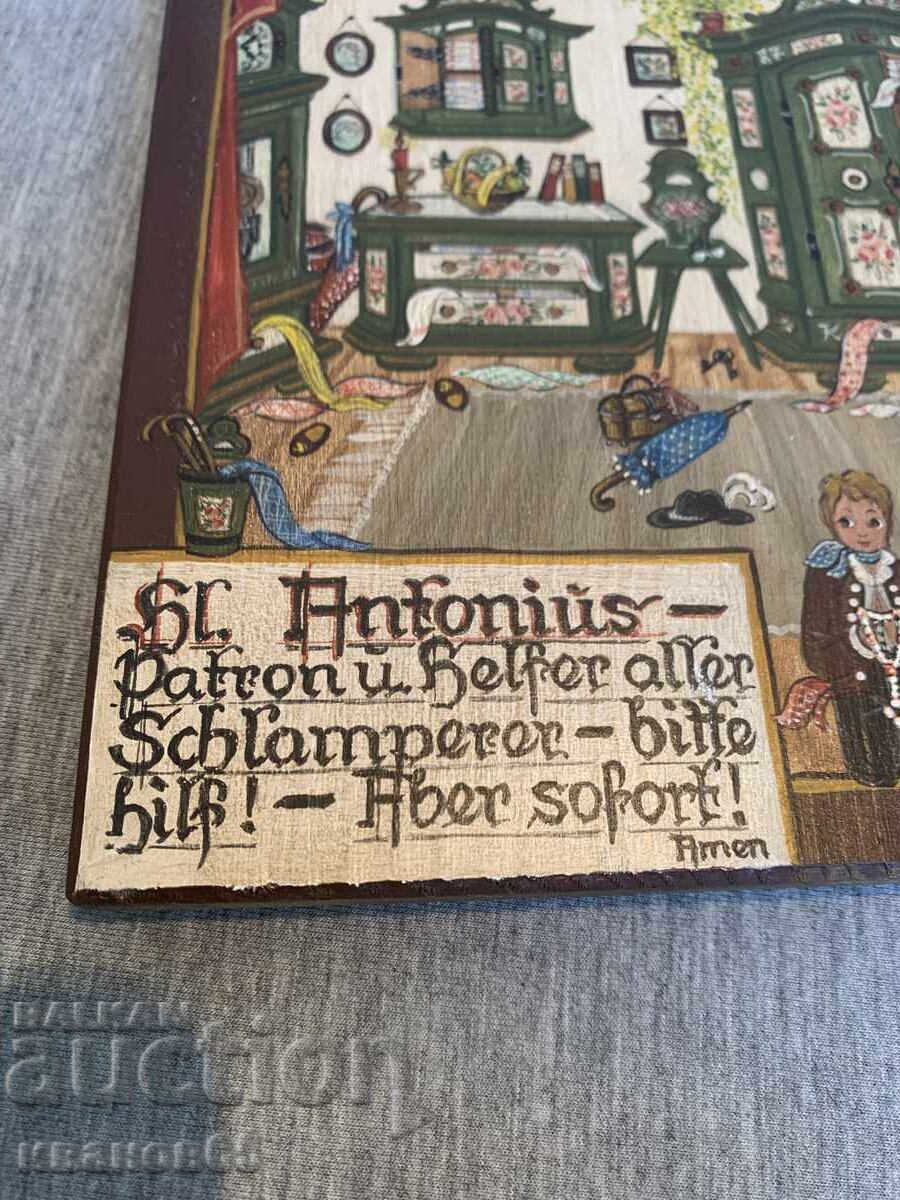 K
Hl. Antonius -
Patron u. Helfer aller
Schlamperer - bitte
hilf! - Aber sofort!
Amen
BALKAN
auction
КВАНОВ68